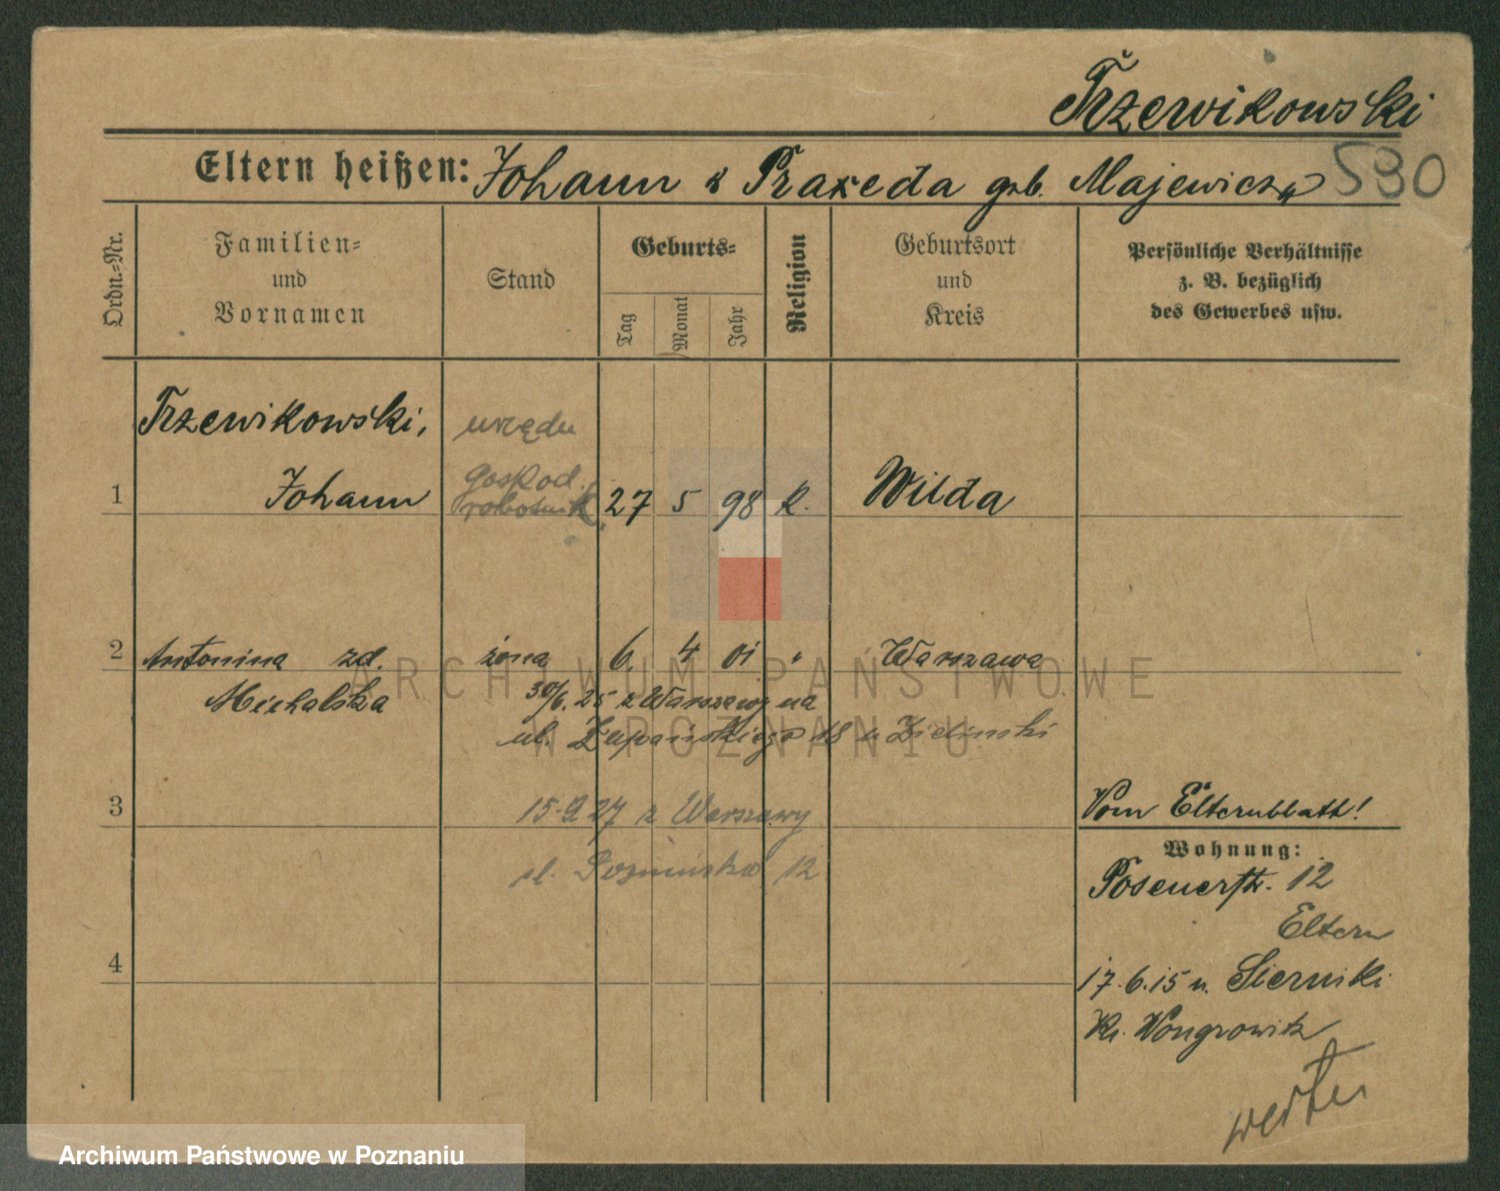 Trzewikowski
Eltern heißen: Johann & Praxeda geb. Majewicz
530
Ordn.-Nr.
Familien-
und
Vornamen
Stand
Geburts-
Tag
Monat
Jahr
Religion
Geburtsort
und
Kreis
Persönliche Verhältnisse
z. B. bezüglich
des Gewerbes usw.
Trzewikowski,
urzędn
gospod.
robotnik
1 Johann 27 5 98 k. Wilda
2 Antonina zd. żona 6. 4 01 " Warszawa
Michalska 30/6. 25 z Warszawy na
ul. Żupańskiego 18 u Zielinski
3
15.9.27 z Warszawy
12
4
Vom Elternblatt!
Wohnung:
Posenerstr. 12
Eltern
17.6.15 n. Sierniki
Kr. Wongrowitz
ARCHIWUM PAŃSTWOWE
W POZNANIU
Archiwum Państwowe w Poznaniu